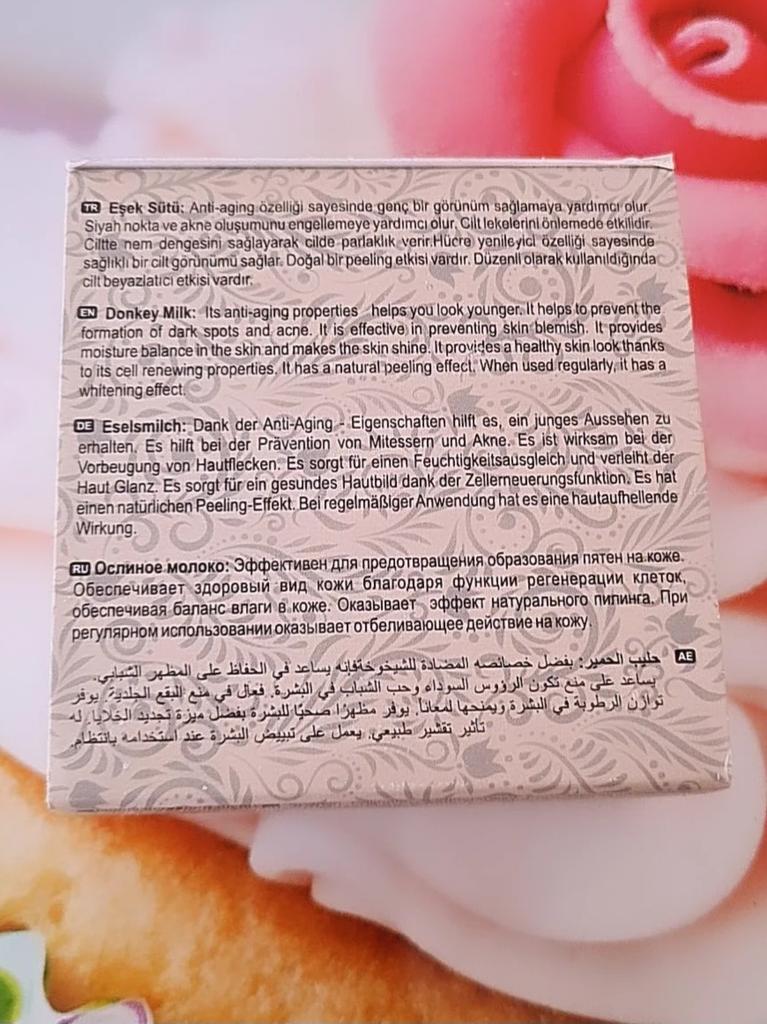 TR Eşek Sütü: Anti-aging özelliği sayesinde genç bir görünüm sağlamaya yardımcı olur.
Siyah nokta ve akne oluşumunu engellemeye yardımcı olur. Cilt lekelerini önlemede etkilidir.
Ciltte nem dengesini sağlayarak cilde parlaklık verir.Hücre yenileyici özelliği sayesinde
sağlıklı bir cilt görünümü sağlar. Doğal bir peeling etkisi vardır. Düzenli olarak kullanıldığında
cilt beyazlatıcı etkisi vardır.
EN Donkey Milk: Its anti-aging properties helps you look younger. It helps to prevent the
formation of dark spots and acne. It is effective in preventing skin blemish. It provides
moisture balance in the skin and makes the skin shine. It provides a healthy skin look thanks
to its cell renewing properties. It has a natural peeling effect. When used regularly, it has a
whitening effect.
DE Eselsmilch: Dank der Anti-Aging - Eigenschaften hilft es, ein junges Aussehen zu
erhalten. Es hilft bei der Prävention von Mitessern und Akne. Es ist wirksam bei der
Vorbeugung von Hautflecken. Es sorgt für einen Feuchtigkeitsausgleich und verleiht der
Haut Glanz. Es sorgt für ein gesundes Hautbild dank der Zellerneuerungsfunktion. Es hat
einen natürlichen Peeling-Effekt. Bei regelmäßiger Anwendung hat es eine hautaufhellende
Wirkung.
RU Ослиное молоко: Эффективен для предотвращения образования пятен на коже.
Обеспечивает здоровый вид кожи благодаря функции регенерации клеток,
обеспечивая баланс влаги в коже. Оказывает эффект натурального пилинга. При
регулярном использовании оказывает отбеливающее действие на кожу.
AE حليب الحمير: بفضل خصائصه المضادة للشيخوخةفإنه يساعد في الحفاظ على المظهر الشبابي.
يساعد على منع تكون الرؤوس السوداء وحب الشباب في البشرة. فعال في منع البقع الجلدية. يوفر
توازن الرطوبة في البشرة ويمنحها لمعانًا. يوفر مظهرًا صحيًا للبشرة بفضل ميزة تجديد الخلايا. له
تأثير تقشير طبيعي. يعمل على تبييض البشرة عند استخدامه بانتظام.